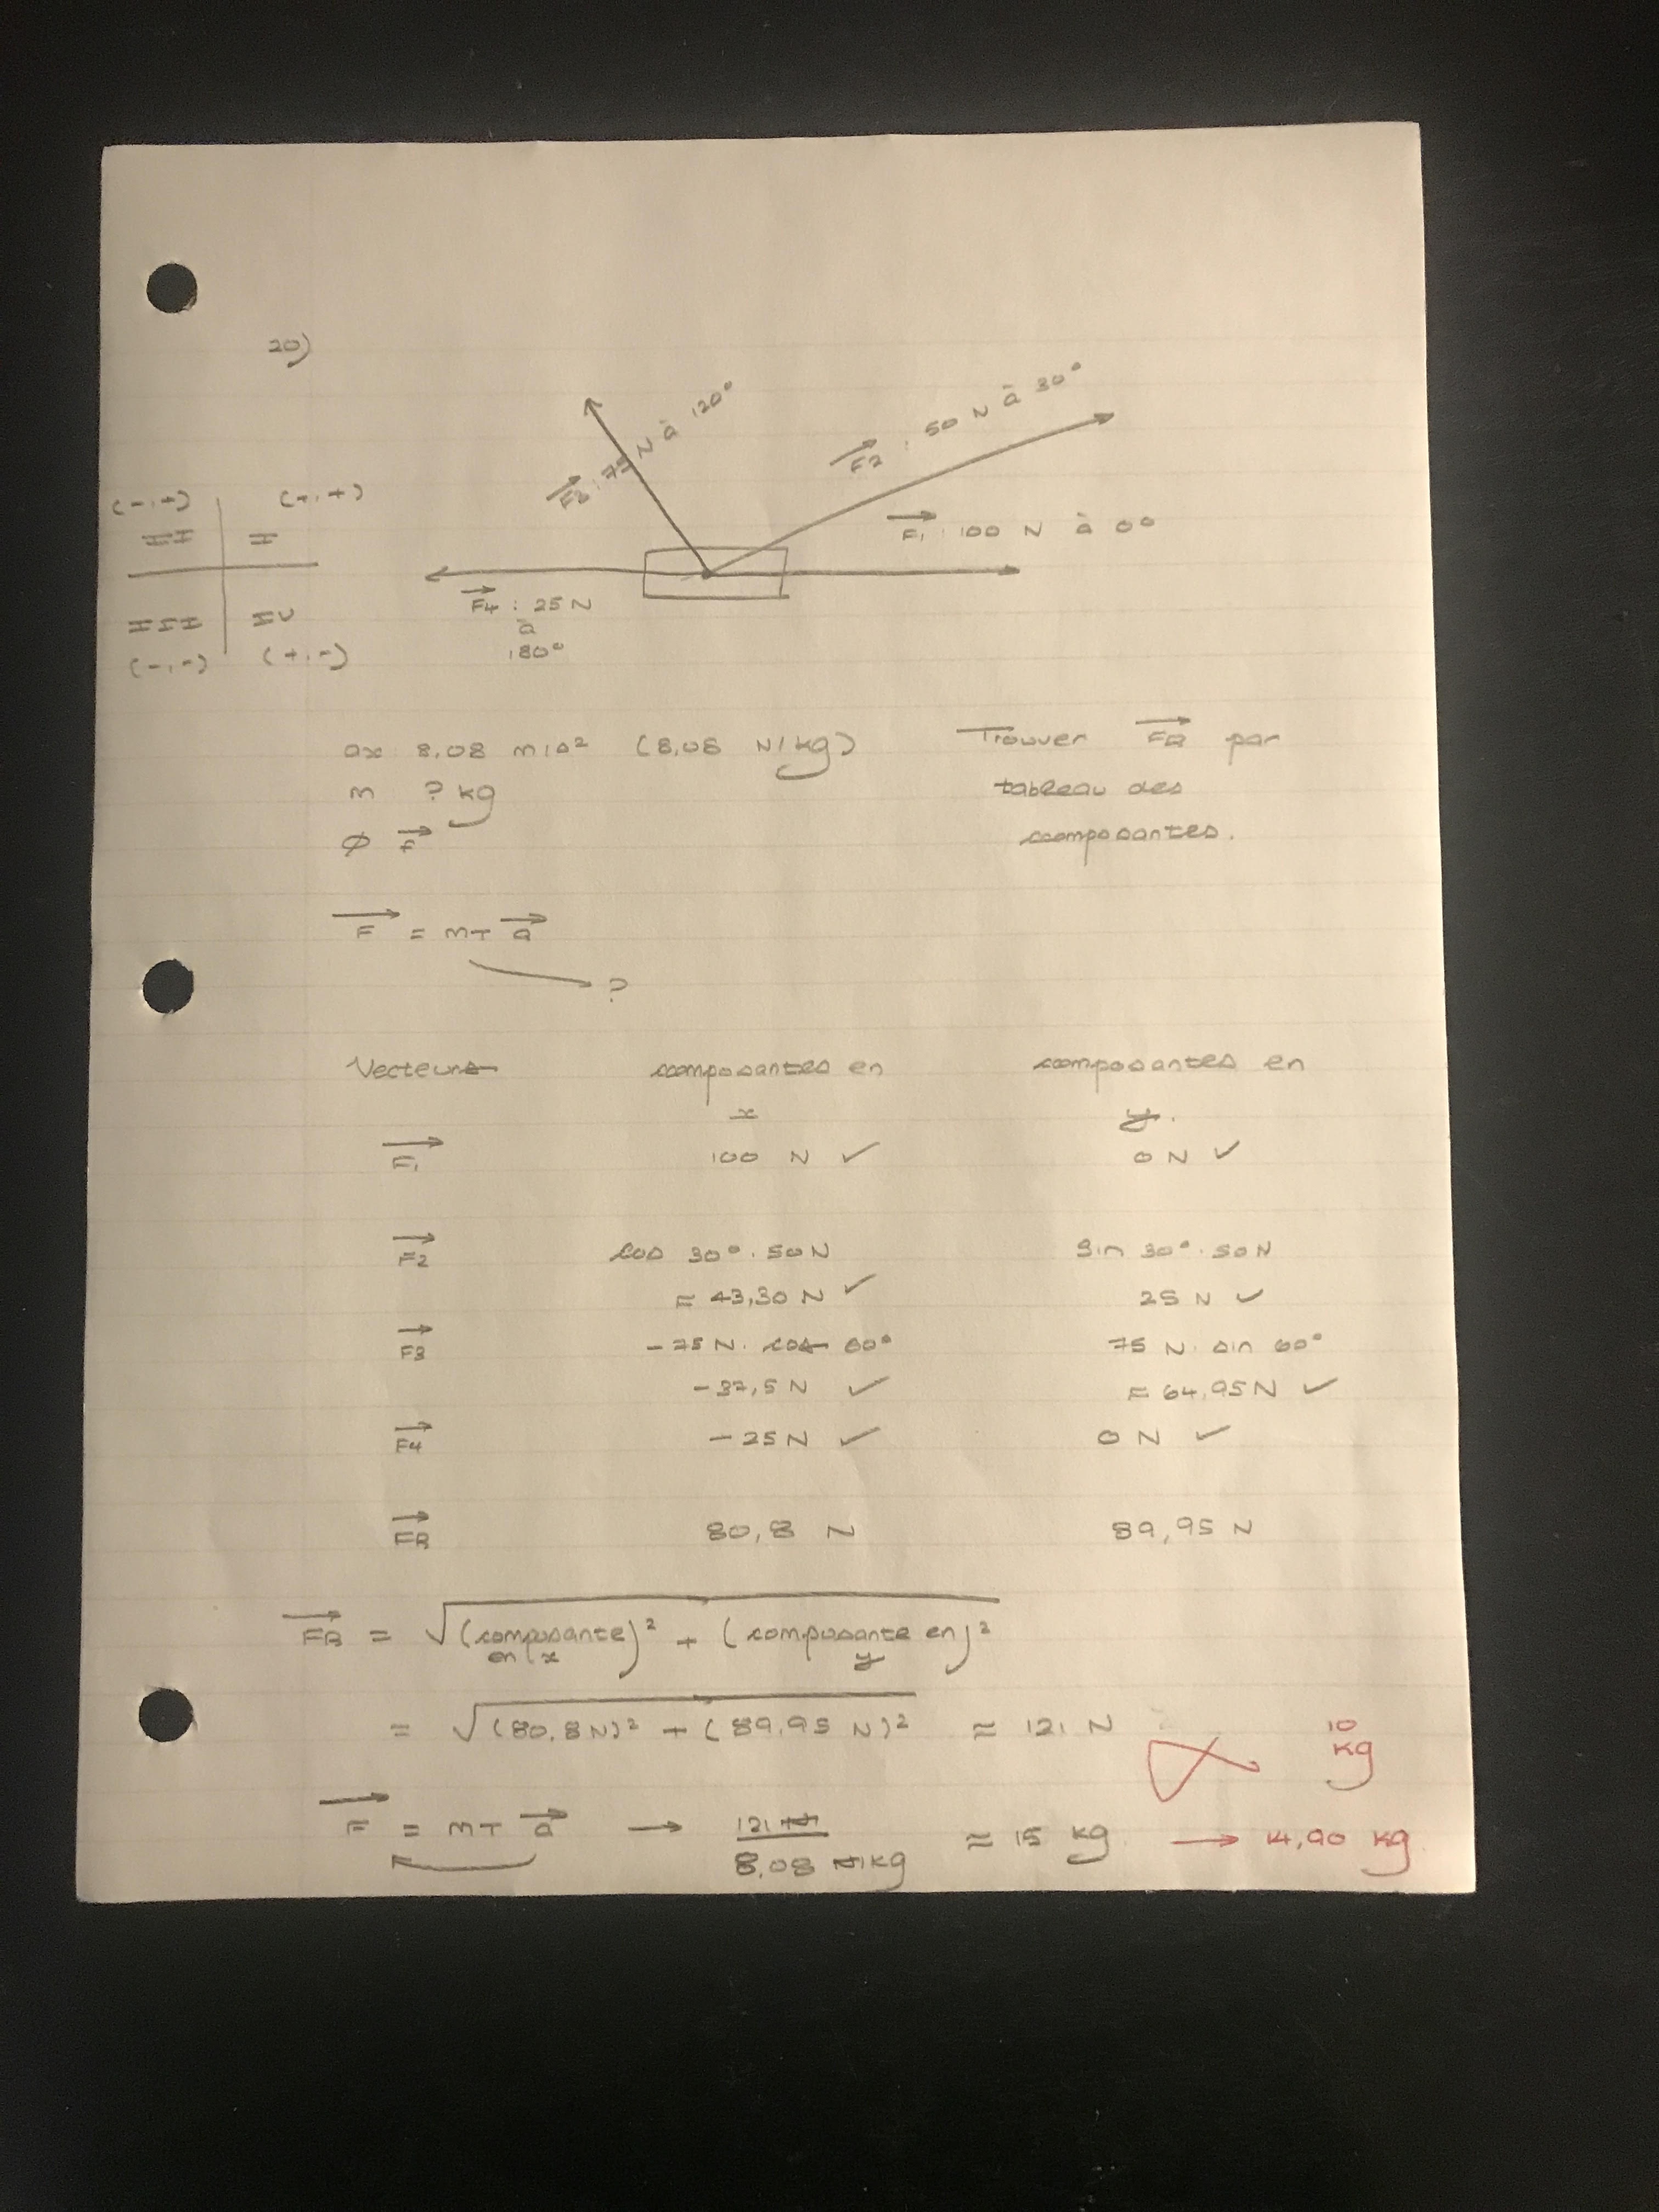 20)
F3 : 75 N à 120°
F2 : 50 N à 30°
F1 : 100 N à 0°
F4 : 25 N
à
180°
(-,+) (+,+)
II I
III IV
(-,-) (+,-)
ax 8,08 m/s² (8,08 N/kg)
m ? kg
Ø F
Trouver FR par
tableau des
composantes.
F = mT a
?
Vecteurs composantes en x composantes en y.
F1 100 N ✓ 0 N ✓
F2 cos 30° · 50 N sin 30° · 50 N
= 43,30 N ✓ 25 N ✓
F3 - 75 N · cos 60° 75 N · sin 60°
- 37,5 N ✓ = 64,95 N ✓
F4 - 25 N ✓ 0 N ✓
FR 80,8 N 89,95 N
FR = √(composante en x)² + (composante en y)²
= √(80,8 N)² + (89,95 N)² ≈ 121 N
10 kg
F = mT a → 121 N / 8,08 N/kg ≈ 15 kg → 14,90 kg